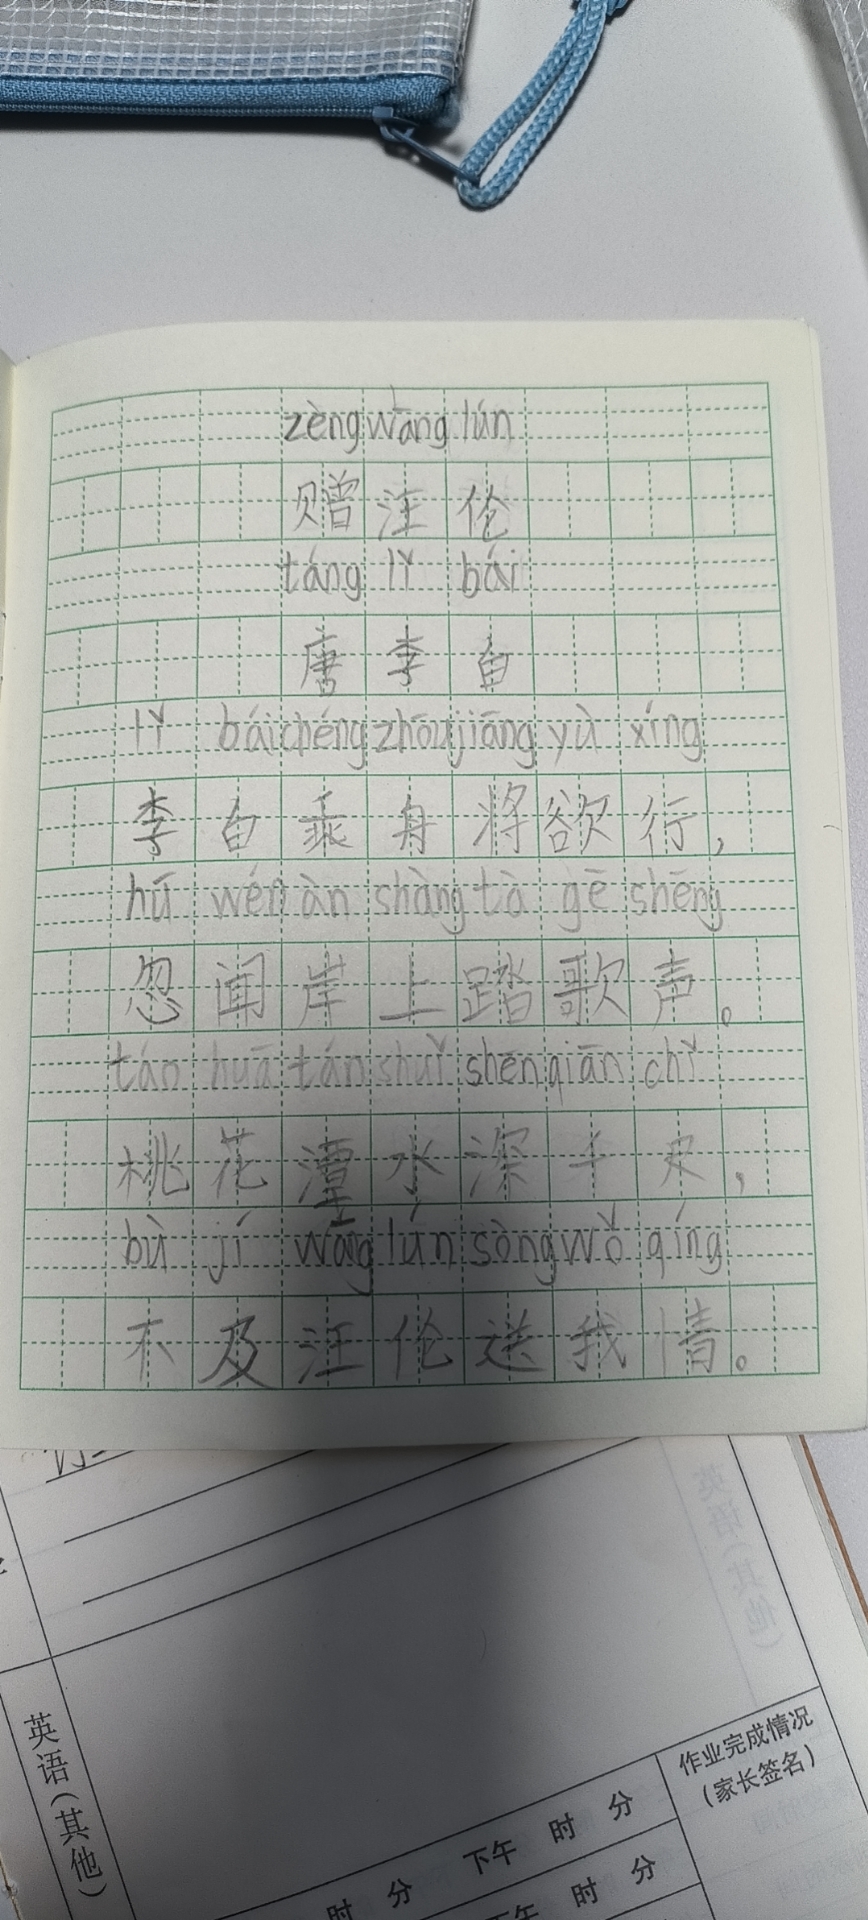 zèng wāng lún
赠汪伦
táng lǐ bái
唐李白
lǐ bái chéng zhōu jiāng yù xíng
李白乘舟将欲行，
hū wén àn shàng tà gē shēng
忽闻岸上踏歌声。
táo huā tán shuǐ shēn qiān chǐ
桃花潭水深千尺，
bù jí wāng lún sòng wǒ qíng
不及汪伦送我情。
英语（其他）
英语（其他）
作业完成情况
（家长签名）
时 分 下午 时 分
时 分 下午 时 分